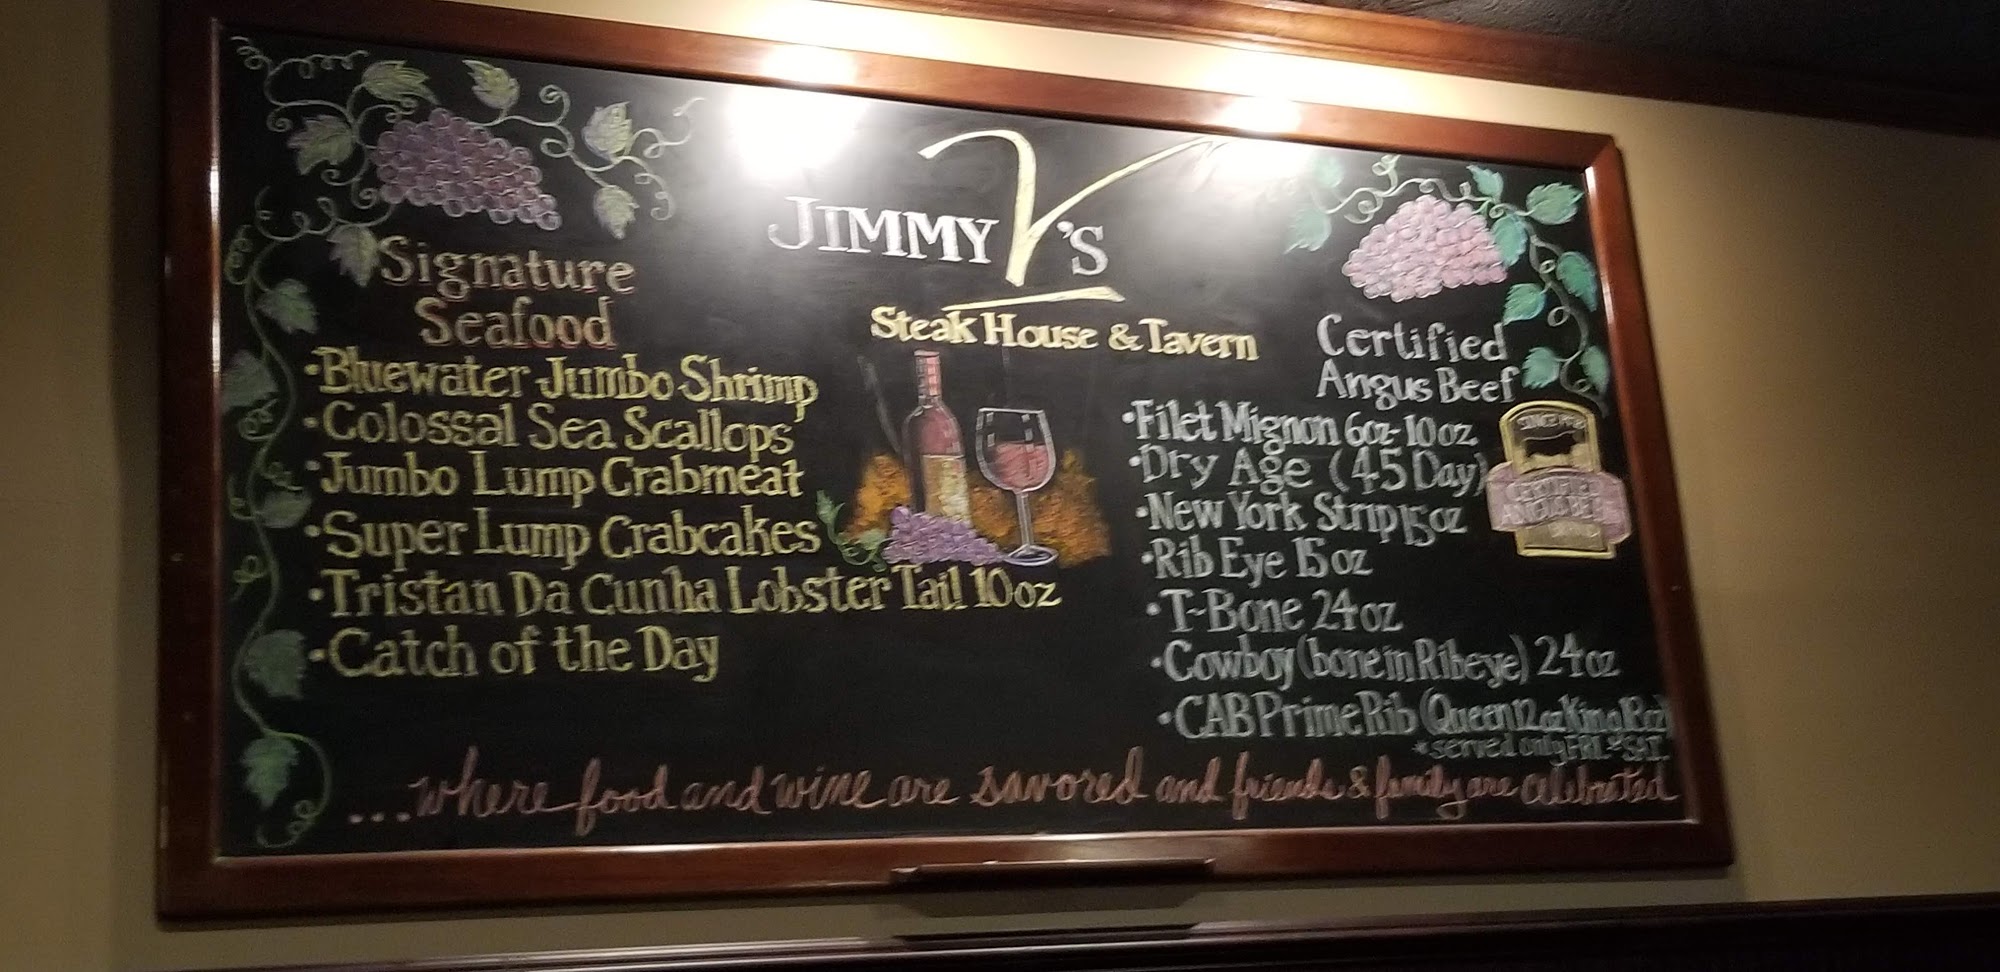 JIMMY V'S
Steak House & Tavern
Signature
Seafood
•Bluewater Jumbo Shrimp
•Colossal Sea Scallops
•Jumbo Lump Crabmeat
•Super Lump Crabcakes
•Tristan Da Cunha Lobster Tail 10oz
•Catch of the Day
Certified
Angus Beef
•Filet Mignon 6oz-10oz
•Dry Age (45 Day)
•New York Strip 15oz
•Rib Eye 15oz
•T-Bone 24oz
•Cowboy (bone in Ribeye) 24oz
•CAB Prime Rib (Queen 12oz King
*served only FRI. & SAT.
SINCE 1978
CERTIFIED
ANGUS BEEF
...where food and wine are savored and friends & family are celebrated